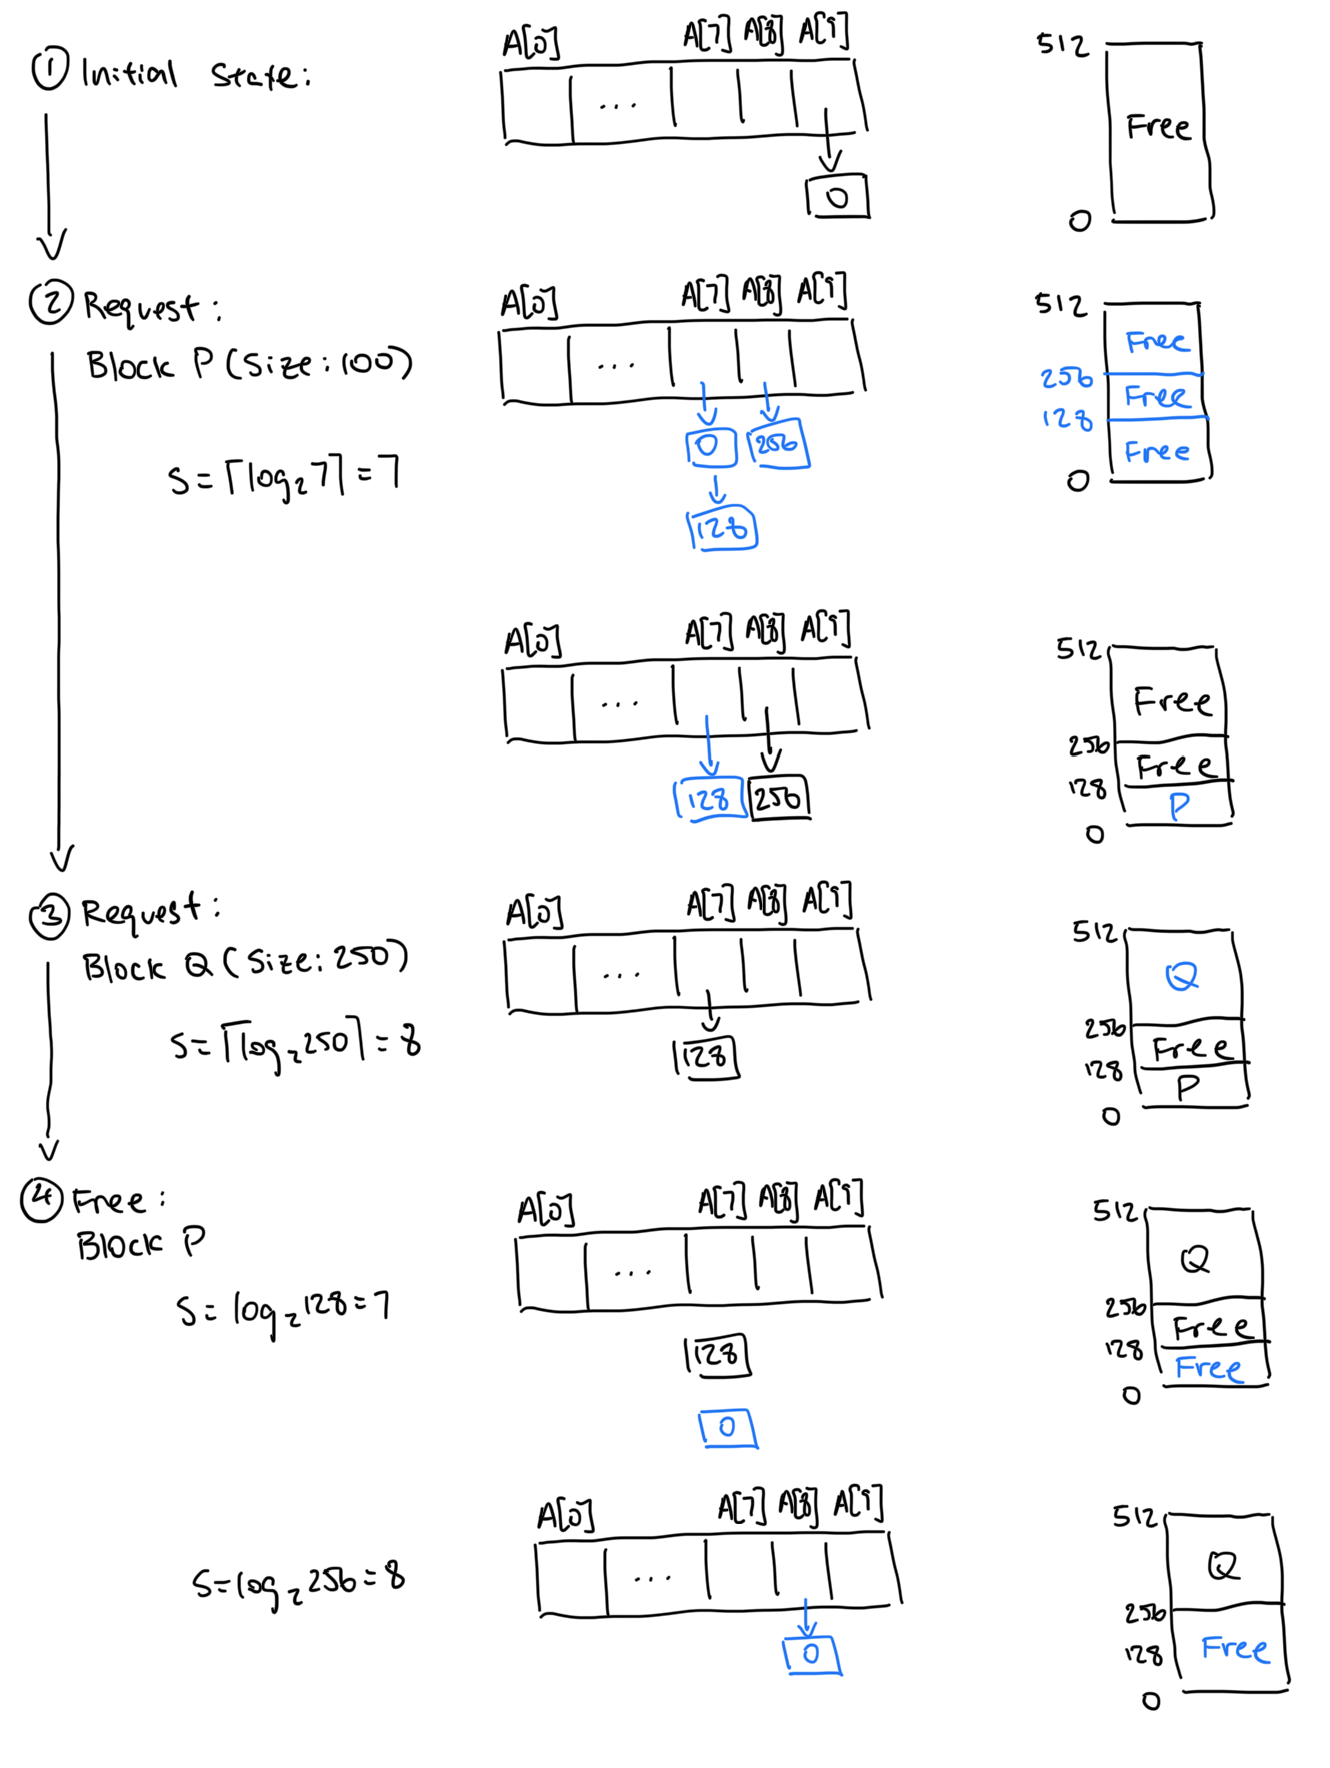 ① Initial State:
A[0] A[7] A[8] A[9]
...
0
512
Free
0
② Request:
Block P (Size: 100)
S = ⌈log₂7⌉ = 7
A[0] A[7] A[8] A[9]
...
0 256
128
512
Free
256
Free
128
Free
0
A[0] A[7] A[8] A[9]
...
128 256
512
Free
256
Free
128
P
0
③ Request:
Block Q (Size: 250)
S = ⌈log₂250⌉ = 8
A[0] A[7] A[8] A[9]
...
128
512
Q
256
Free
128
P
0
④ Free:
Block P
S = log₂128 = 7
A[0] A[7] A[8] A[9]
...
128
0
512
Q
256
Free
128
Free
0
S = log₂256 = 8
A[0] A[7] A[8] A[9]
...
0
512
Q
256
128
Free
0